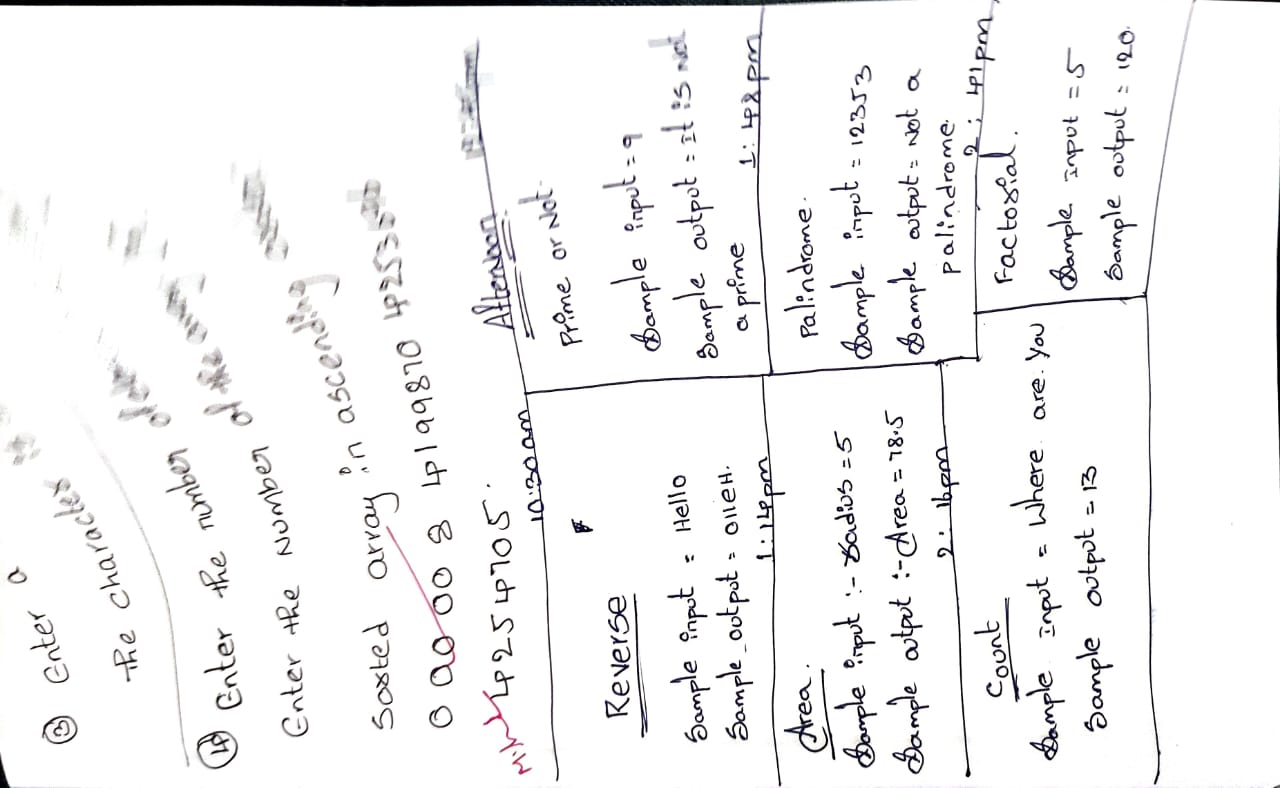 ③ Enter a
the character
④ Enter the number of
Enter the Number of the
Sorted array in ascending
0 00 00 8 4199870 42535
4254705.
10:30am
Afternoon
Reverse
Sample input = Hello
Sample output = olleH.
1:14pm
Prime or Not.
Sample input = 9
Sample output = It is Not
a prime
1:48pm
Area.
Sample input :- radius = 5
Sample output :- Area = 78.5
2:16pm
Palindrome.
Sample input = 12353
Sample output = Not a
palindrome.
2:41pm
Count
Sample input = Where are You
Sample output = 13
Factorial.
Sample input = 5
Sample output = 120.